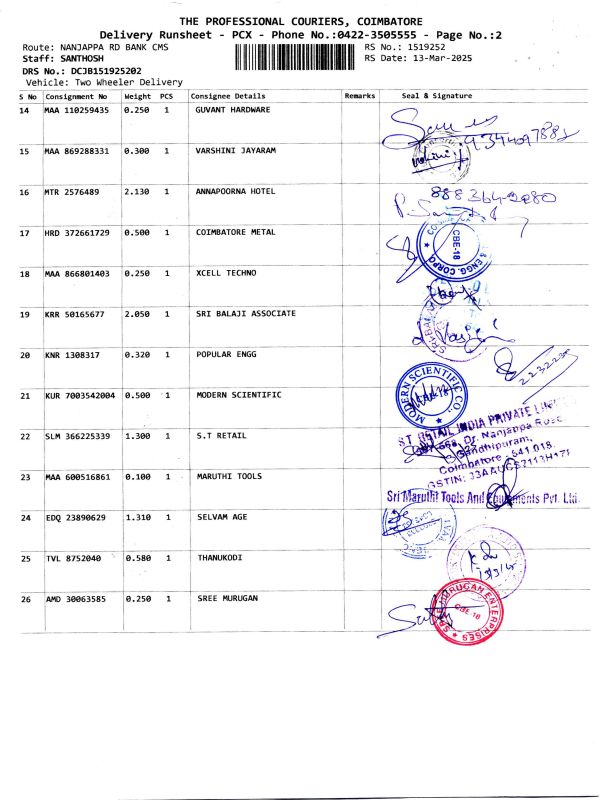 THE PROFESSIONAL COURIERS, COIMBATORE
Delivery Runsheet - PCX - Phone No.:0422-3505555 - Page No.:2
Route: NANJAPPA RD BANK CMS
RS No.: 1519252
Staff: SANTHOSH
RS Date: 13-Mar-2025
DRS No.: DCJB151925202
Vehicle: Two Wheeler Delivery
S No Consignment No Weight PCS Consignee Details Remarks Seal & Signature
14 MAA 110259435 0.250 1 GUVANT HARDWARE
15 MAA 869288331 0.300 1 VARSHINI JAYARAM
16 MTR 2576489 2.130 1 ANNAPOORNA HOTEL
17 HRD 372661729 0.500 1 COIMBATORE METAL
CBE-18
& ENGG. CORPO
18 MAA 866801403 0.250 1 XCELL TECHNO
19 KRR 50165677 2.050 1 SRI BALAJI ASSOCIATE
20 KNR 1308317 0.320 1 POPULAR ENGG
21 KUR 7003542004 0.500 1 MODERN SCIENTIFIC
MODERN SCIENTIFIC CO.
22 SLM 366225339 1.300 1 S.T RETAIL
S.T. RETAIL INDIA PRIVATE
Dr. Nanjappa Road
Gandhipuram,
Coimbatore - 641 018.
23 MAA 600516861 0.100 1 MARUTHI TOOLS
Sri Maruthi Tools And Equipments Pvt. Ltd.
24 EDQ 23890629 1.310 1 SELVAM AGE
25 TVL 8752040 0.580 1 THANUKODI
13/3/25
26 AMD 30063585 0.250 1 SREE MURUGAN
SREE MURUGAN ENTERPRISES
CBE-18